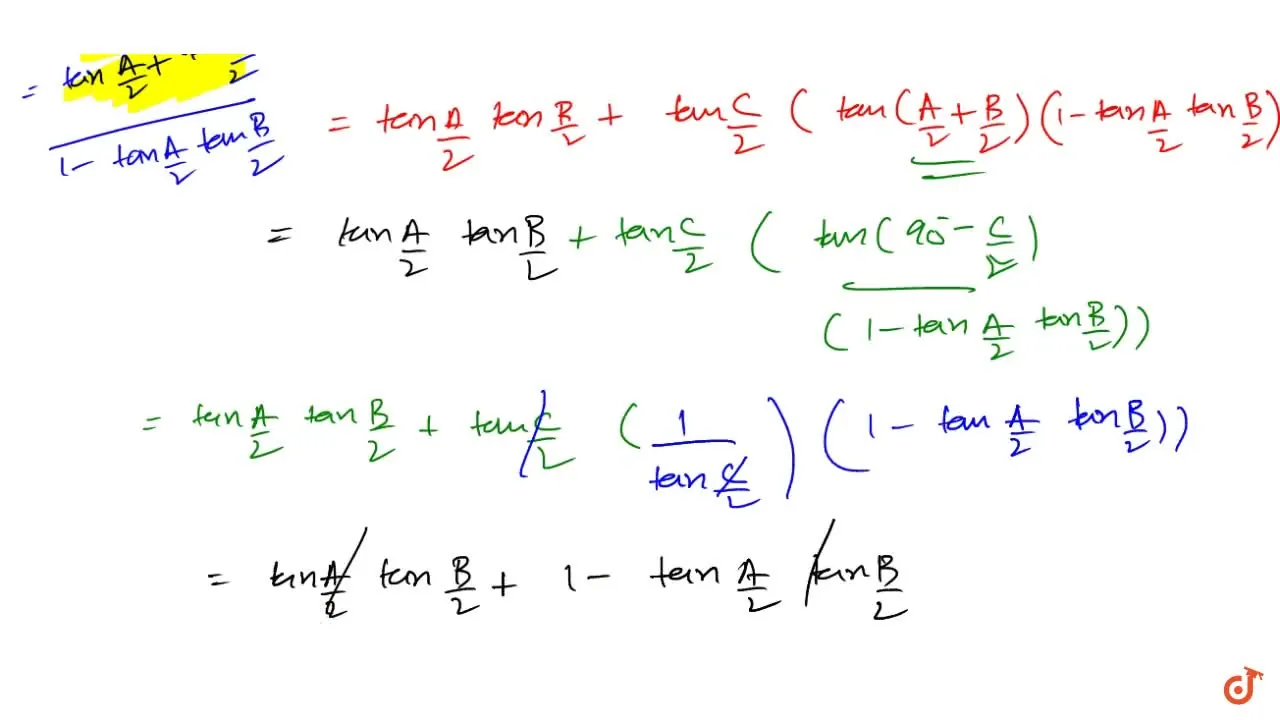 = tan A/2 +
2
1 - tan A/2 tan B/2
= tan A/2 tan B/2 + tan C/2 ( tan( A/2 + B/2 ) ( 1 - tan A/2 tan B/2 )
= tan A/2 tan B/2 + tan C/2 ( tan( 90° - C/2 )
( 1 - tan A/2 tan B/2 ) )
= tan A/2 tan B/2 + tan C/2 ( 1 / tan C/2 ) ( 1 - tan A/2 tan B/2 ) )
= tan A/2 tan B/2 + 1 - tan A/2 tan B/2